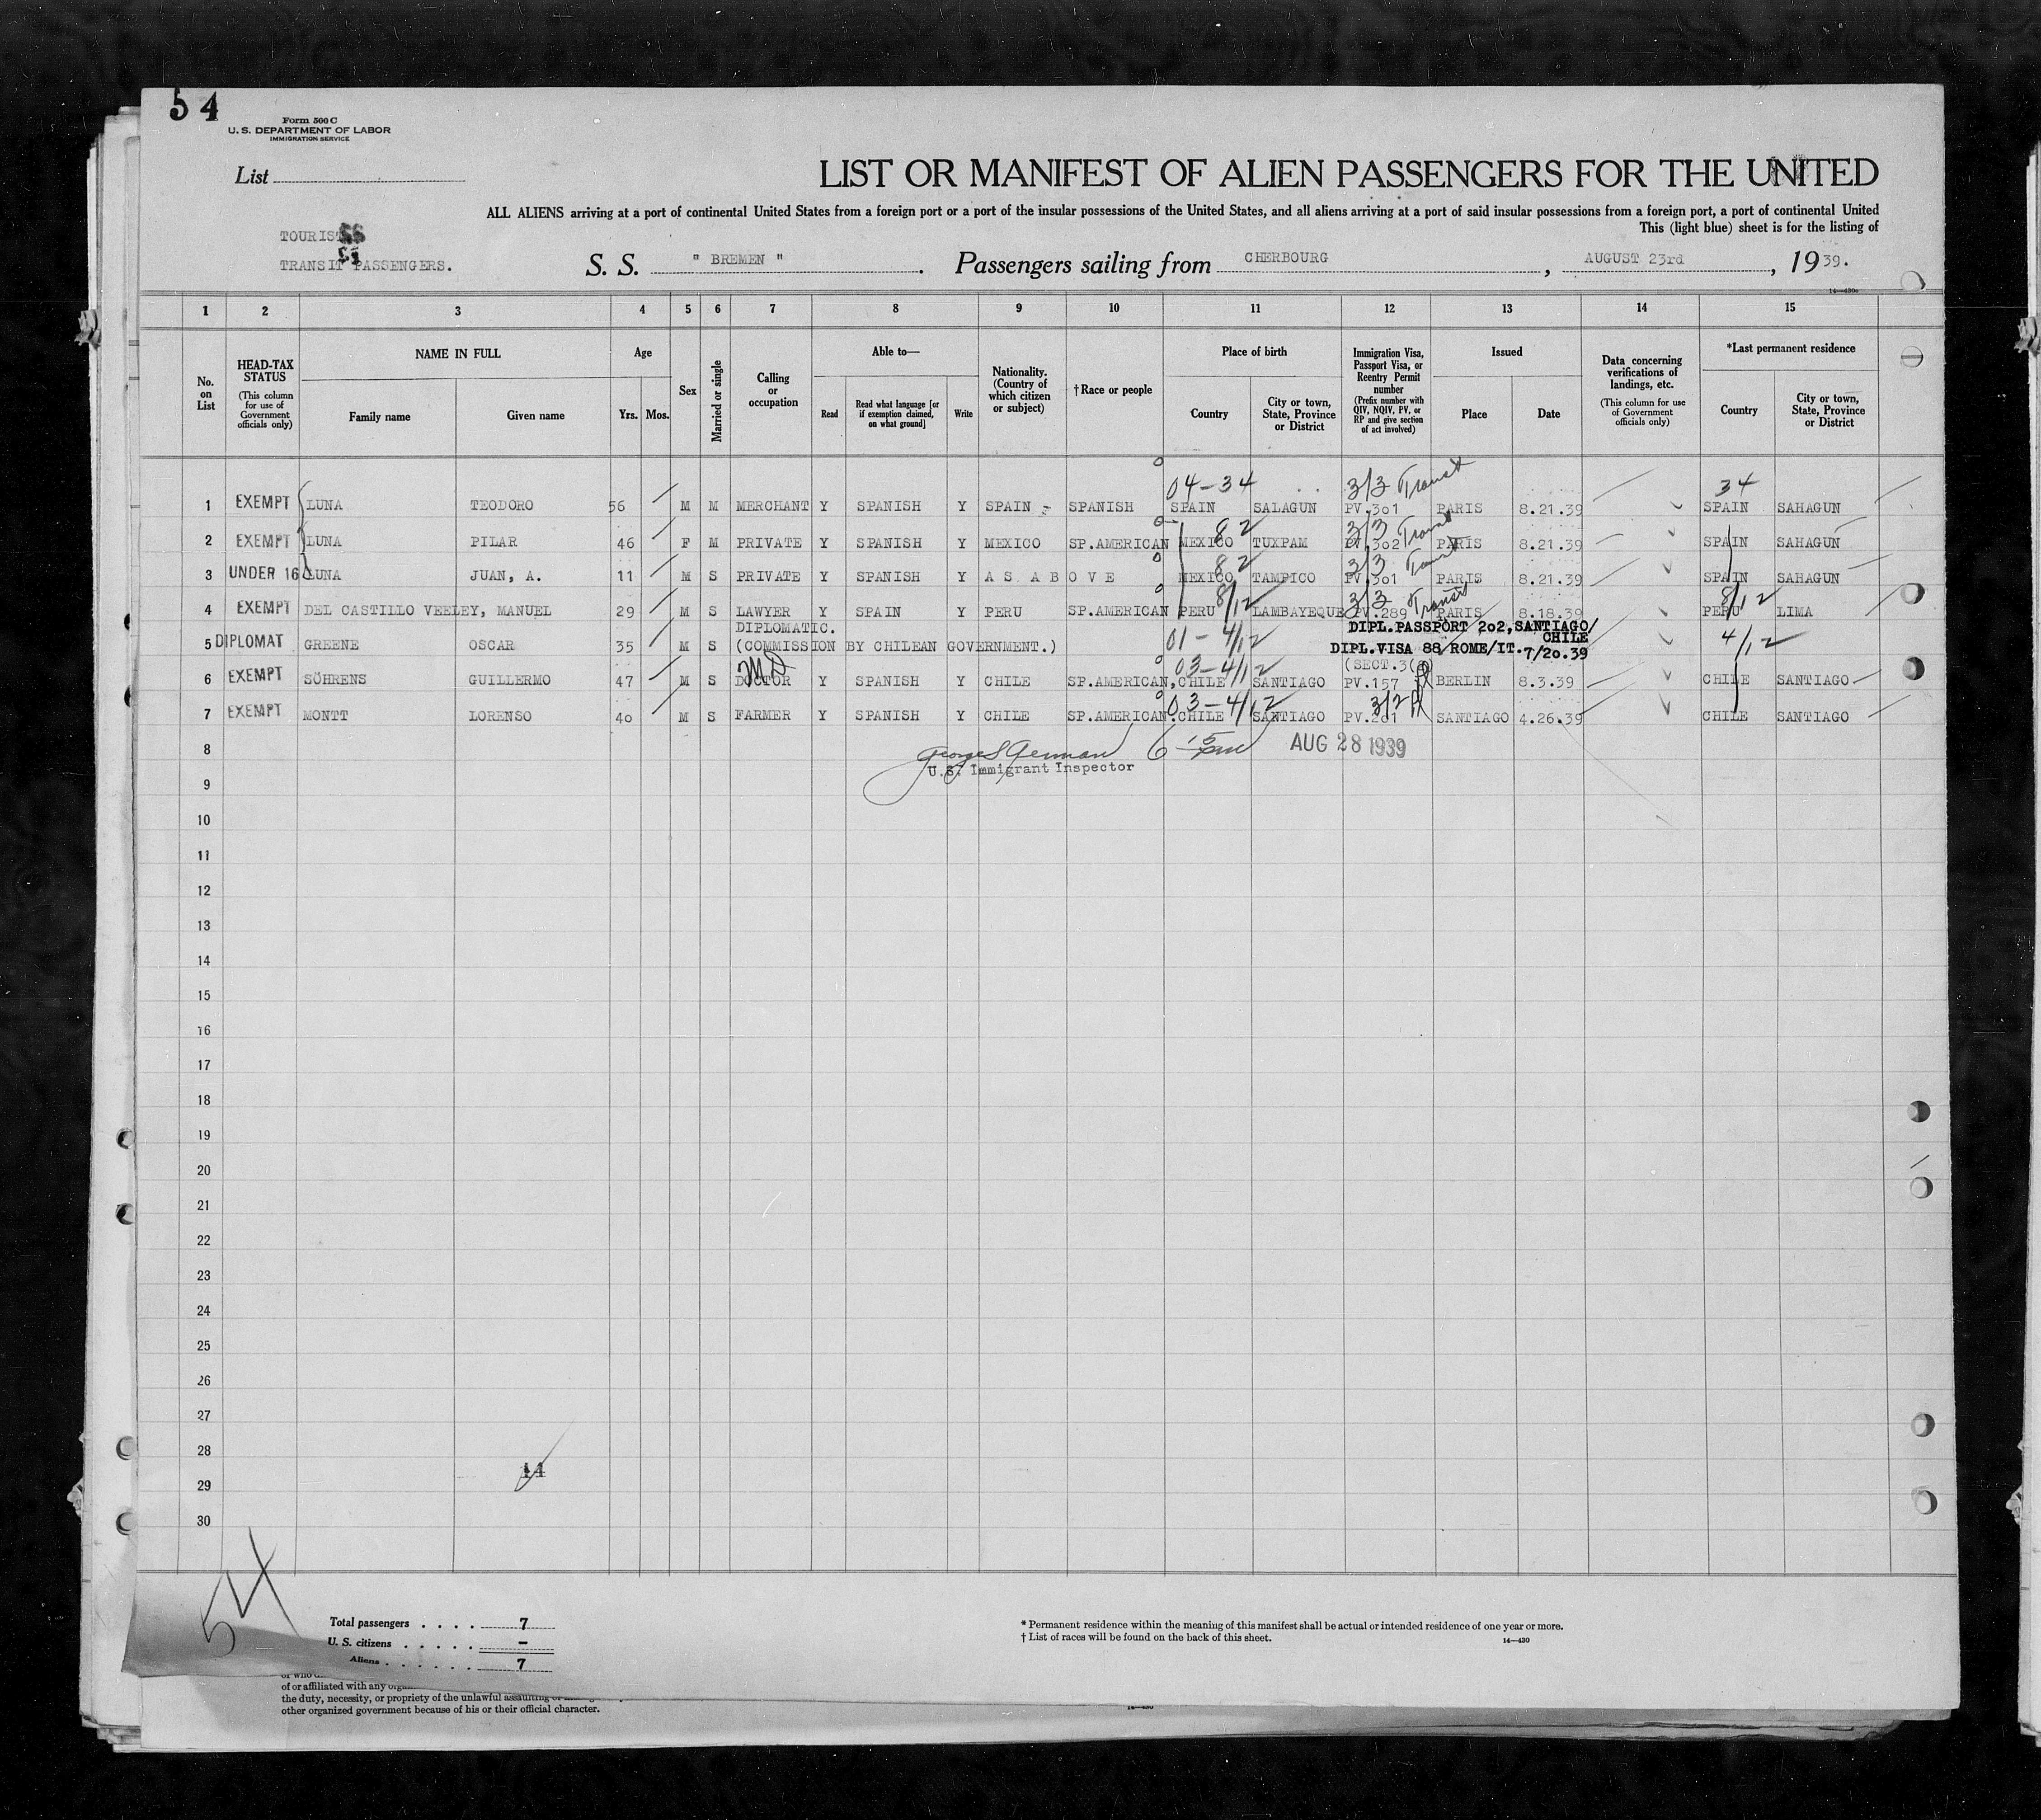 54
Form 500 C
U. S. DEPARTMENT OF LABOR
IMMIGRATION SERVICE
List
LIST OR MANIFEST OF ALIEN PASSENGERS FOR THE UNITED
ALL ALIENS arriving at a port of continental United States from a foreign port or a port of the insular possessions of the United States, and all aliens arriving at a port of said insular possessions from a foreign port, a port of continental United
This (light blue) sheet is for the listing of
TOURIST
TRANSIT PASSENGERS.
S. S. " BREMEN ". Passengers sailing from CHERBOURG, AUGUST 23rd, 1939.
1 2 3 4 5 6 7 8 9 10 11 12 13 14 15
No. on List
HEAD-TAX STATUS (This column for use of Government officials only)
NAME IN FULL
Family name
Given name
Age
Yrs. Mos.
Sex
Married or single
Calling or occupation
Able to—
Read
Read what language [or if exemption claimed, on what ground]
Write
Nationality. (Country of which citizen or subject)
†Race or people
Place of birth
Country
City or town, State, Province or District
Immigration Visa, Passport Visa, or Reentry Permit number (Prefix number with QIV, NQIV, PV, or RP and give section of act involved)
Issued
Place
Date
Data concerning verifications of landings, etc. (This column for use of Government officials only)
*Last permanent residence
Country
City or town, State, Province or District
04-34 3/3 Transit 34
1 EXEMPT LUNA TEODORO 56 M M MERCHANT Y SPANISH Y SPAIN - SPANISH SPAIN SALAGUN PV.301 PARIS 8.21.39 SPAIN SAHAGUN
82 3/3 Transit
2 EXEMPT LUNA PILAR 46 F M PRIVATE Y SPANISH Y MEXICO SP.AMERICAN MEXICO TUXPAM PV.302 PARIS 8.21.39 SPAIN SAHAGUN
82 3/3 Transit
3 UNDER 16 LUNA JUAN, A. 11 M S PRIVATE Y SPANISH Y AS ABOVE MEXICO TAMPICO PV.301 PARIS 8.21.39 SPAIN SAHAGUN
8/12 3/3 Transit 8/12
4 EXEMPT DEL CASTILLO VEELEY, MANUEL 29 M S LAWYER Y SPAIN Y PERU SP.AMERICAN PERU LAMBAYEQUE PV.289 PARIS 8.18.39 PERU LIMA
DIPLOMATIC. DIPL.PASSPORT 202,SANTIAGO/
CHILE
5 DIPLOMAT GREENE OSCAR 35 M S (COMMISSION BY CHILEAN GOVERNMENT.) 01-4/12 DIPL.VISA 88/ROME/IT.7/20.39 4/12
MD 03-4/12 (SECT.3(2)
6 EXEMPT SÖHRENS GUILLERMO 47 M S DOCTOR Y SPANISH Y CHILE SP.AMERICAN, CHILE SANTIAGO PV.157 BERLIN 8.3.39 CHILE SANTIAGO
03-4/12 3/2
7 EXEMPT MONTT LORENSO 40 M S FARMER Y SPANISH Y CHILE SP.AMERICAN. CHILE SANTIAGO PV.201 SANTIAGO 4.26.39 CHILE SANTIAGO
8 George S German 6 15 pm AUG 28 1939
U.S. Immigrant Inspector
9
10
11
12
13
14
15
16
17
18
19
20
21
22
23
24
25
26
27
28
44
29
30
54
Total passengers . . . . 7
U. S. citizens . . . . . –
Aliens . . . . . . 7
* Permanent residence within the meaning of this manifest shall be actual or intended residence of one year or more.
† List of races will be found on the back of this sheet.
14—430
of or affiliated with any
the duty, necessity, or propriety of the unlawful assaulting
other organized government because of his or their official character.